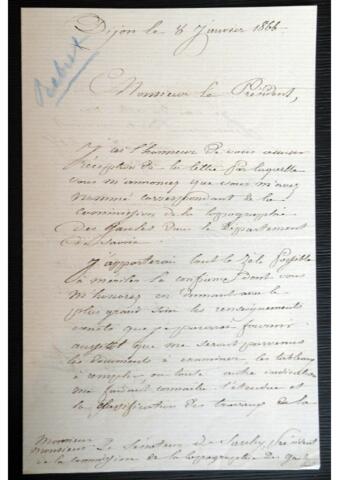 Dijon le 8 Janvier 1866
Monsieur le Président,
J'ai l'honneur de vous accuser
réception de la lettre par laquelle
vous m'annoncez que vous m'avez
nommé correspondant de la
commission de la topographie
des Gaules dans le Département
de Savoie.
J'apporterai tout le zèle possible
à mériter la confiance dont vous
m'honorez en donnant avec le
plus grand soin les renseignements
exacts que je pourrai fournir
aussitôt que me seront parvenus
les documents à examiner, les tableaux
à remplir ou toute autre indication
me faisant connaître l'étendue et
la classification des travaux de la
Monsieur
Monsieur le Sénateur de Saulcy, Président
de la commission de la topographie des Gaules